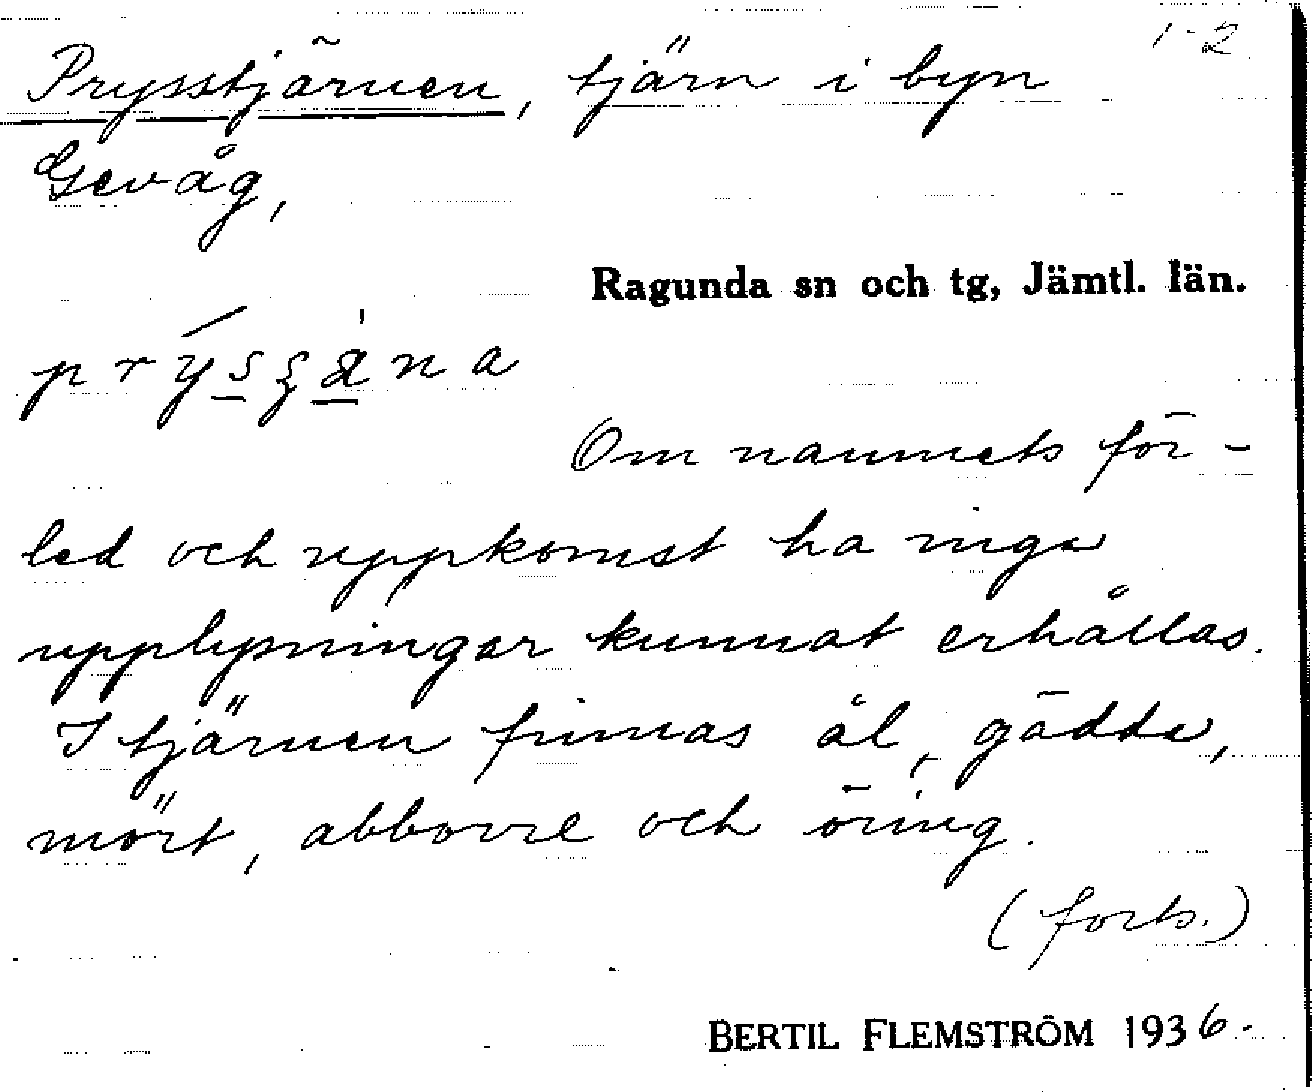 1-2
Prysstjärnen, tjärn i byn
Gevåg,
Ragunda sn och tg, Jämtl. län.
Om namnets för-
led och uppkomst ha inga
upplysningar kunnat erhållas.
I tjärnen finnas ål, gädda,
mört, abborre och öring.
(forts.)
BERTIL FLEMSTRÖM 1936.